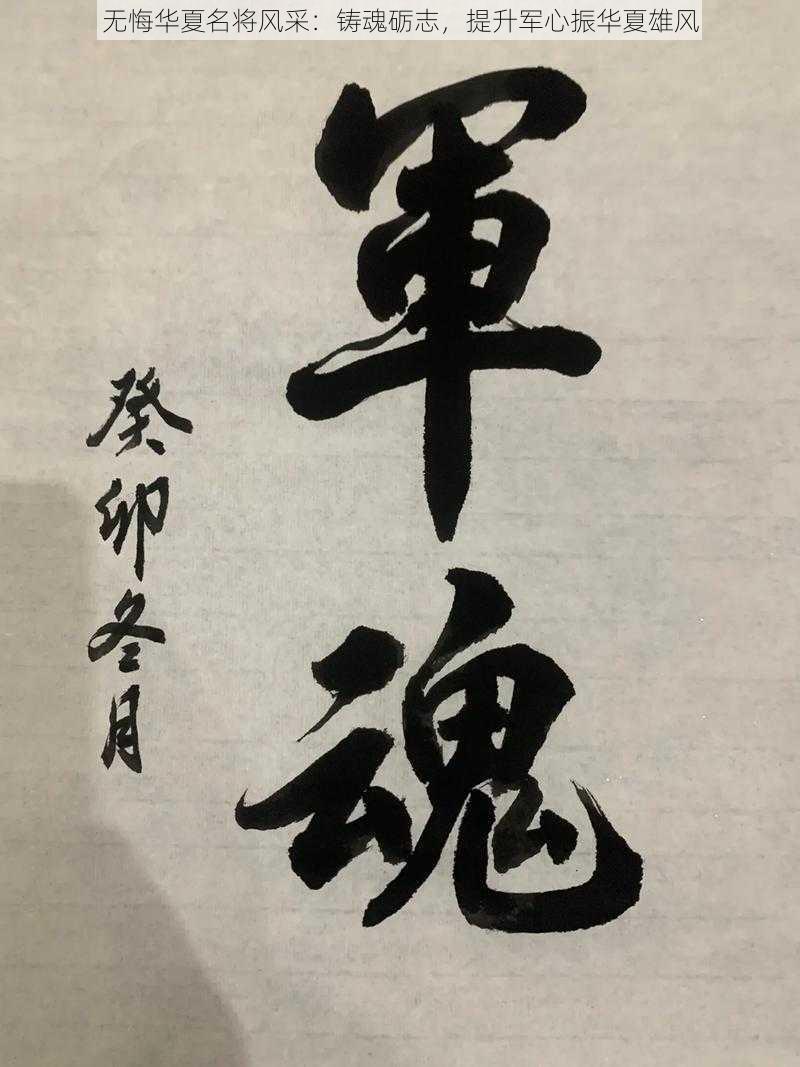 无悔华夏名将风采：铸魂砺志，提升军心振华夏雄风
軍魂
癸卯冬月